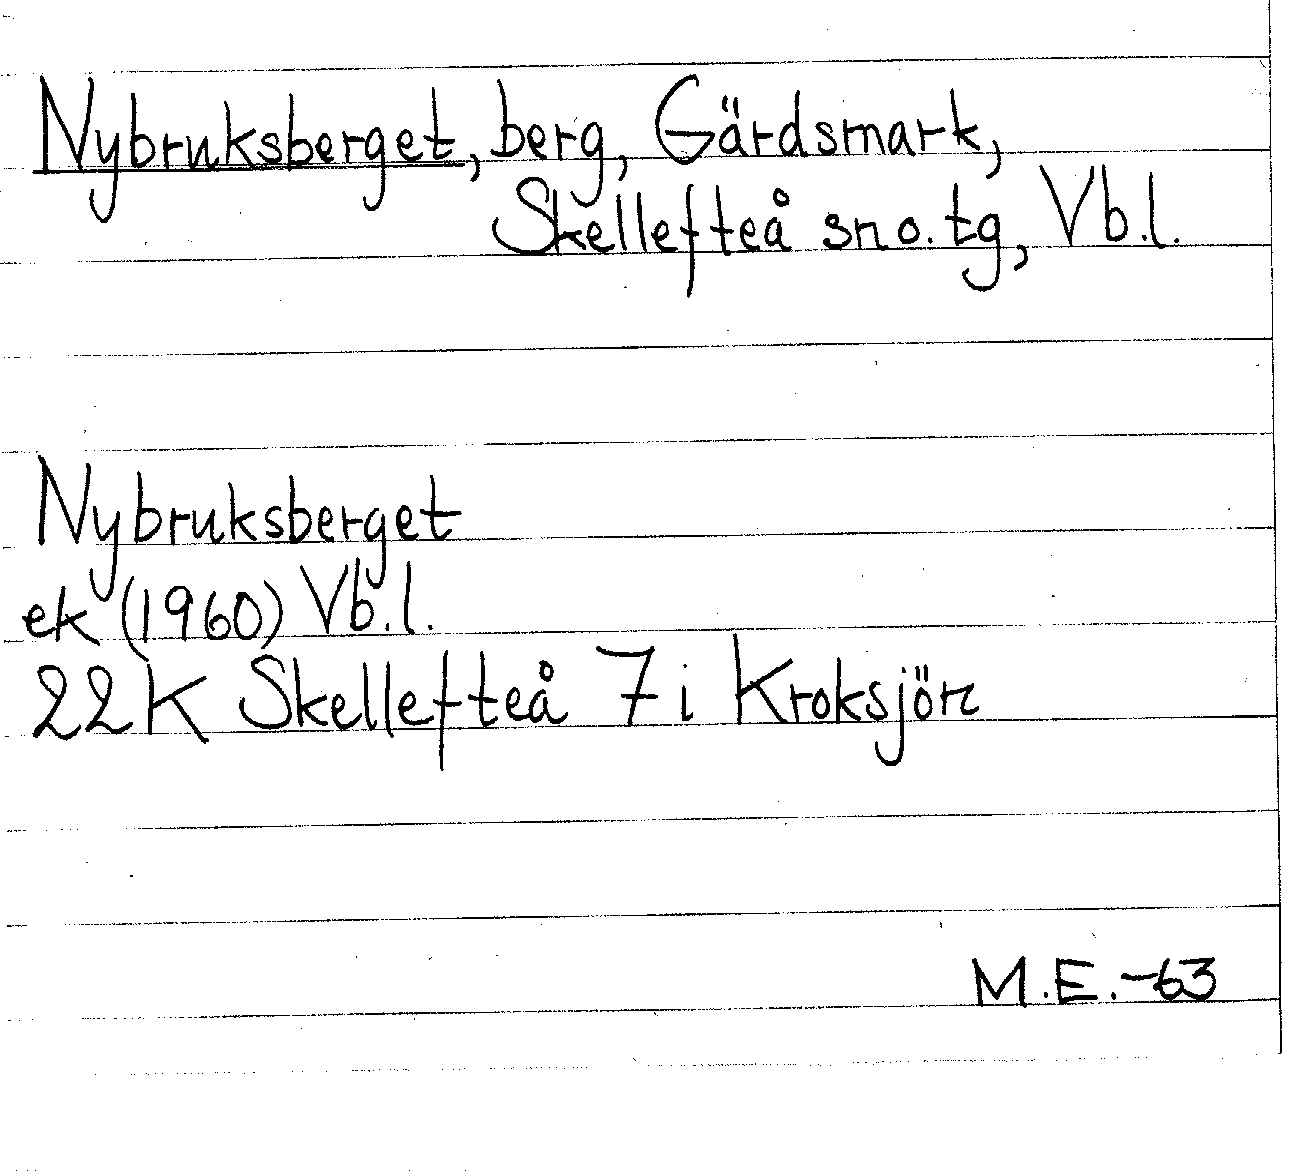 Nybruksberget, berg, Gärdsmark,
Skellefteå sn o. tg, Vb.l.
Nybruksberget
ek (1960) Vb.l.
22K Skellefteå 7i Kroksjön
M.E.-63